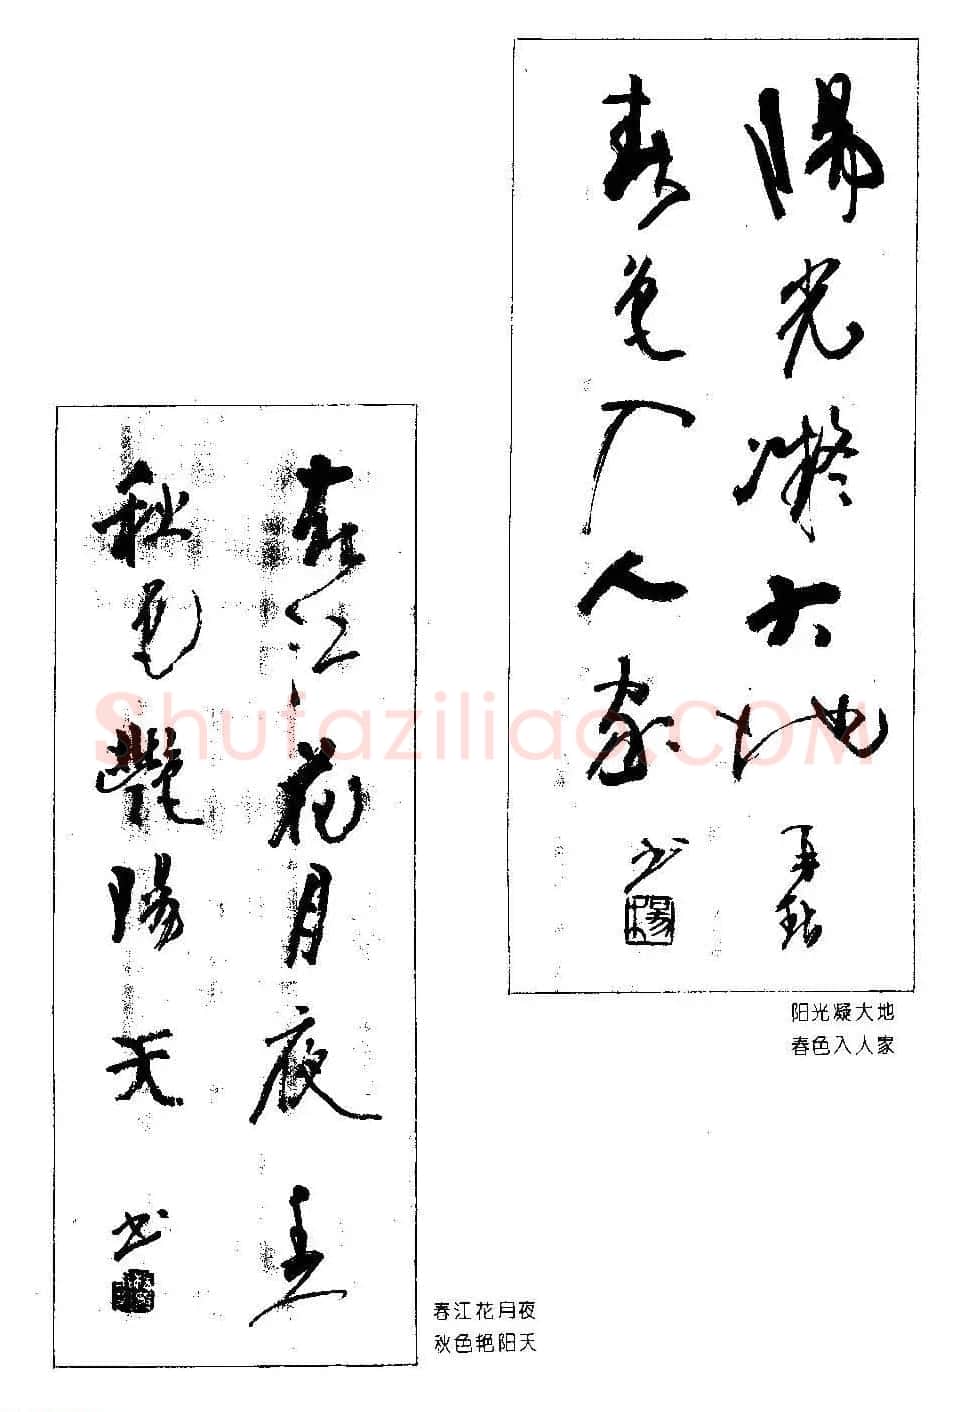 陽光凝大地
春色入人家
书
阳光凝大地
春色入人家
春江花月夜
秋色艷陽天
书
春江花月夜
秋色艳阳天
Shufaziliao.COM